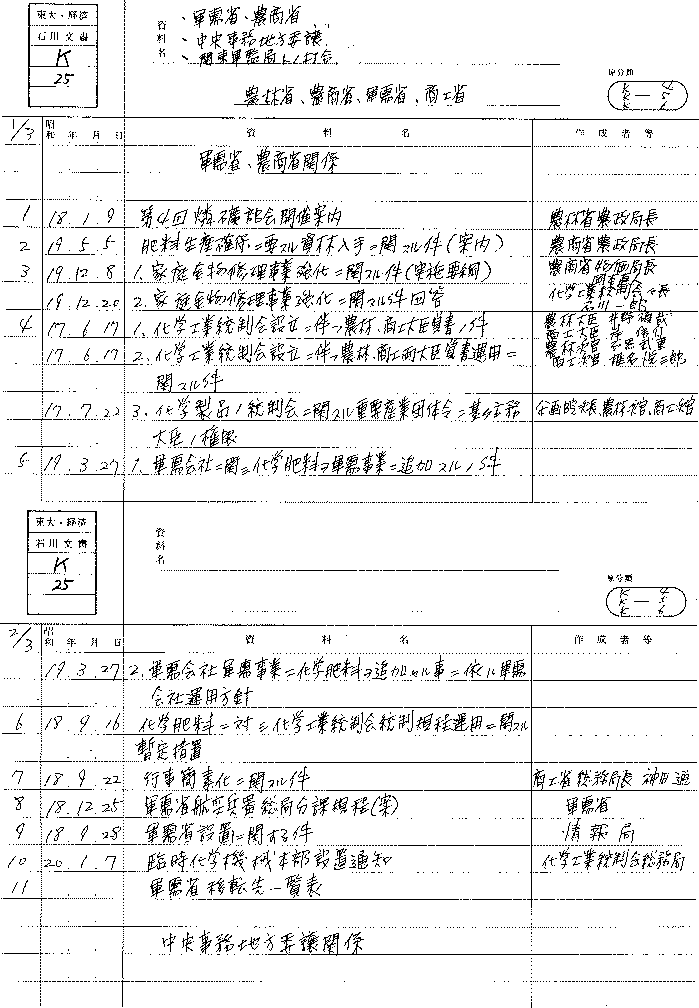 東大・経済
石川文書
K
25
資料名
、軍需省、農商省
、中央事務地方委譲
、関東軍務局トノ打合
農林省、農商省、軍需省、商工省
原分類
K — 4
K — 5
K — 6
1/3 昭和 年 月 日 資料名 作成者等
軍需省、農商省関係
1 18.1.9 第4回燐礦部会開催案内 農林省農政局長
2 19.5.5 肥料生産確保ニ要スル資材入手ニ関スル件(案内) 農商省農政局長
3 19.12.8 1.家庭金物修理事業強化ニ関スル件(実施要綱) 農商省物価局長
19.12.20 2.家庭金物修理事業強化ニ関スル件回答 化学工業統制会々長 石川一郎
4 17.6.17 1.化学工業統制会設立ニ伴フ農林、商工大臣覚書ノ件 農林大臣 井野碩哉
17.6.17 2.化学工業統制会設立ニ伴フ農林、商工両大臣覚書運用ニ
関スル件
商工大臣 岸信介
商工次官 椎名悦三郎
17.7.22 3.化学製品ノ統制会ニ関スル重要産業団体令ニ基ク主務
大臣ノ権限
5 19.3.27 1.軍需会社ニ関シ化学肥料ヲ軍需事業ニ追加スルノ件
東大・経済
石川文書
K
25
資料名
原分類
K — 4
K — 5
K — 6
2/3 昭和 年 月 日 資料名 作成者等
19.3.27 2.軍需会社軍需事業ニ化学肥料ヲ追加セル事ニ依ル軍需
会社運用方針
6 18.9.16 化学肥料ニ対シ化学工業統制会統制規程運用ニ関スル
暫定措置
7 18.9.22 行事簡素化ニ関スル件 商工省総務局長 神田暹
8 18.12.25 軍需省航空兵器総局分課規程(案) 軍需省
9 18.9.28 軍需省設置ニ関する件 情報局
10 20.1.7 臨時化学機械本部設置通知 化学工業統制会総務局
11 軍需省移転先一覧表
中央事務地方委譲関係